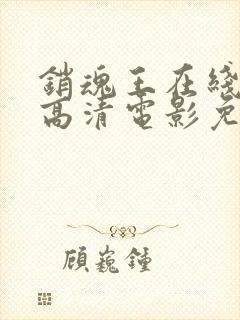 銷魂王在綫
高清電影免
顧巍鍾